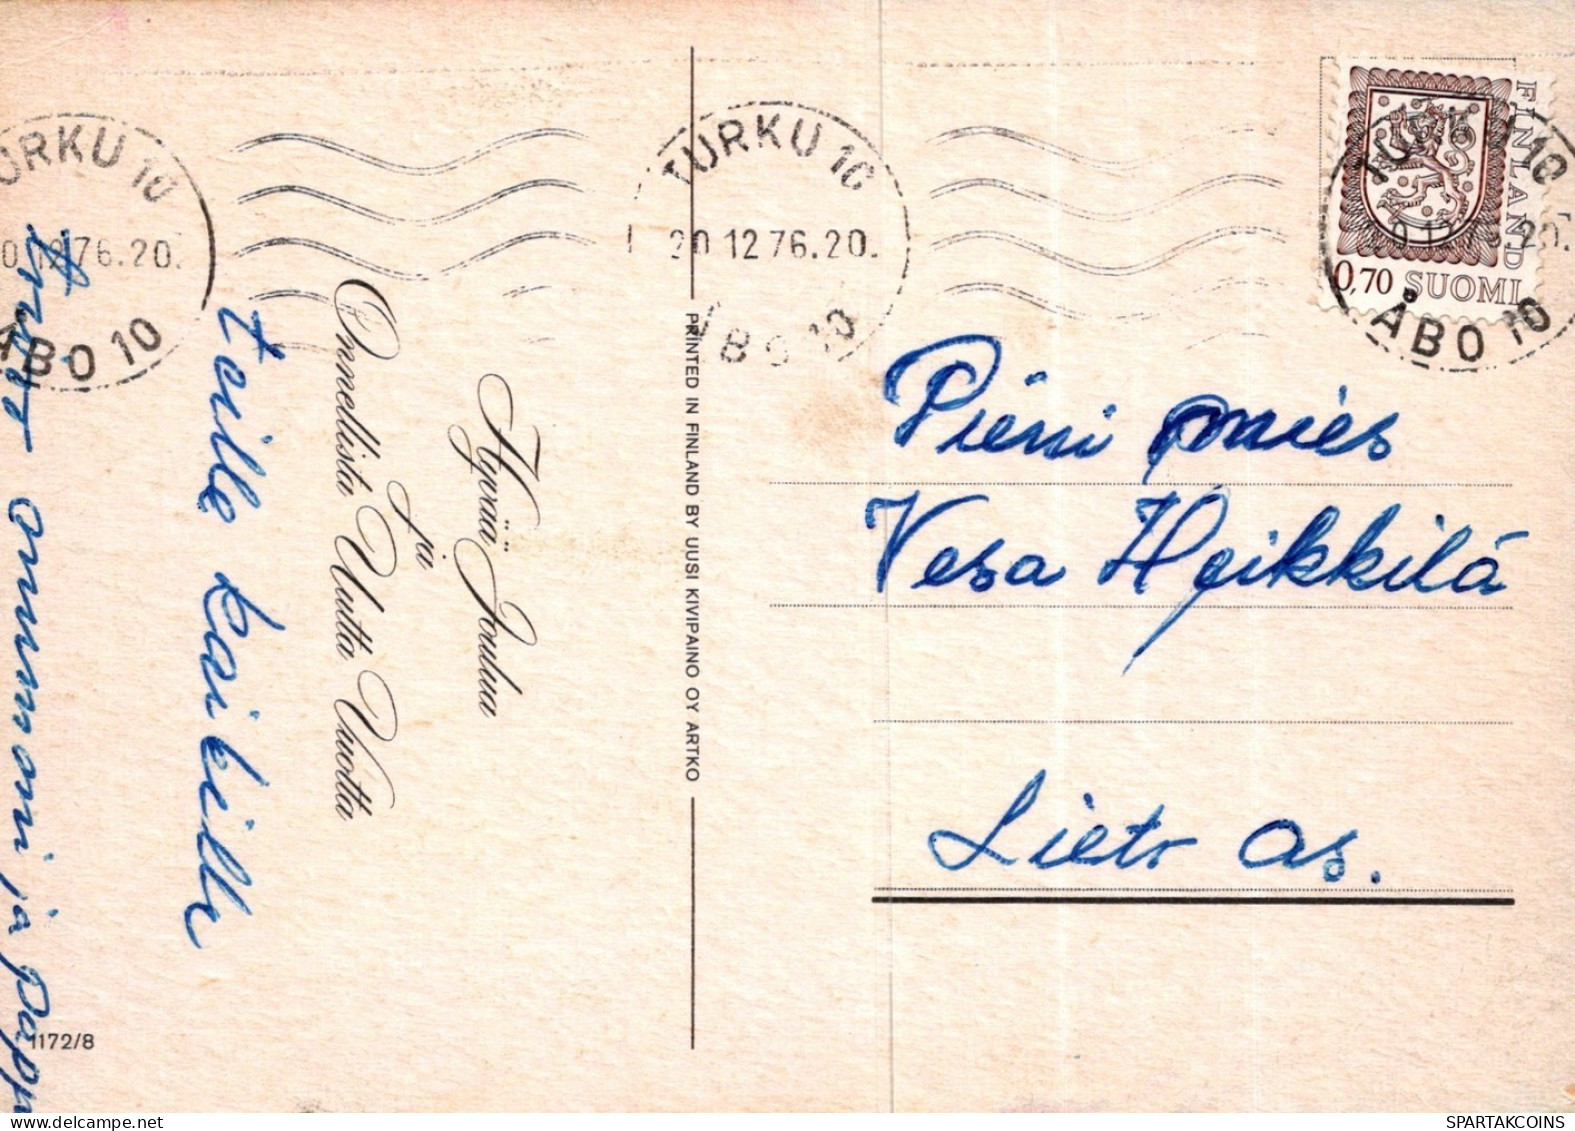 TURKU 10
20.12.76.20.
ÅBO 10
TURKU 10
20.12.76.20.
ÅBO 10
TURKU 10
ÅBO 10
FINLAND
0,70 SUOMI
Hyvää Joulua
ja
Onnellista Uutta Vuotta
teille kaikille
ommoni ja
1172/8
PRINTED IN FINLAND BY UUSI KIVIPAINO OY ARTKO
Pieni mies
Vesa Heikkilä
Lieto as.
SPARTAKCOINS